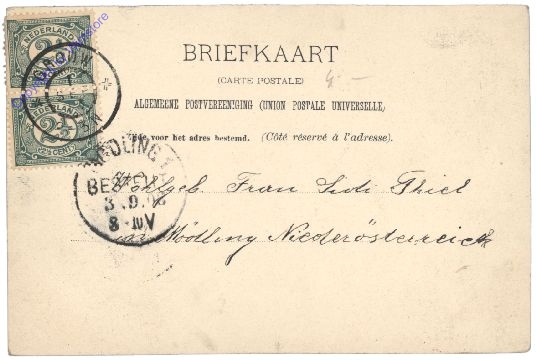 NEDERLAND
2½
NEDERLAND
2½
CENT
BRIEFKAART
(CARTE POSTALE)
4.-
ALGEMEENE POSTVEREENIGING (UNION POSTALE UNIVERSELLE)
Zijde voor het adres bestemd. (Côté réservé à l'adresse).
MÖDLING
BESTELLT
8-10V
Wohlgeb Frau Lidi Thiel
in Mödling Niederösterreich